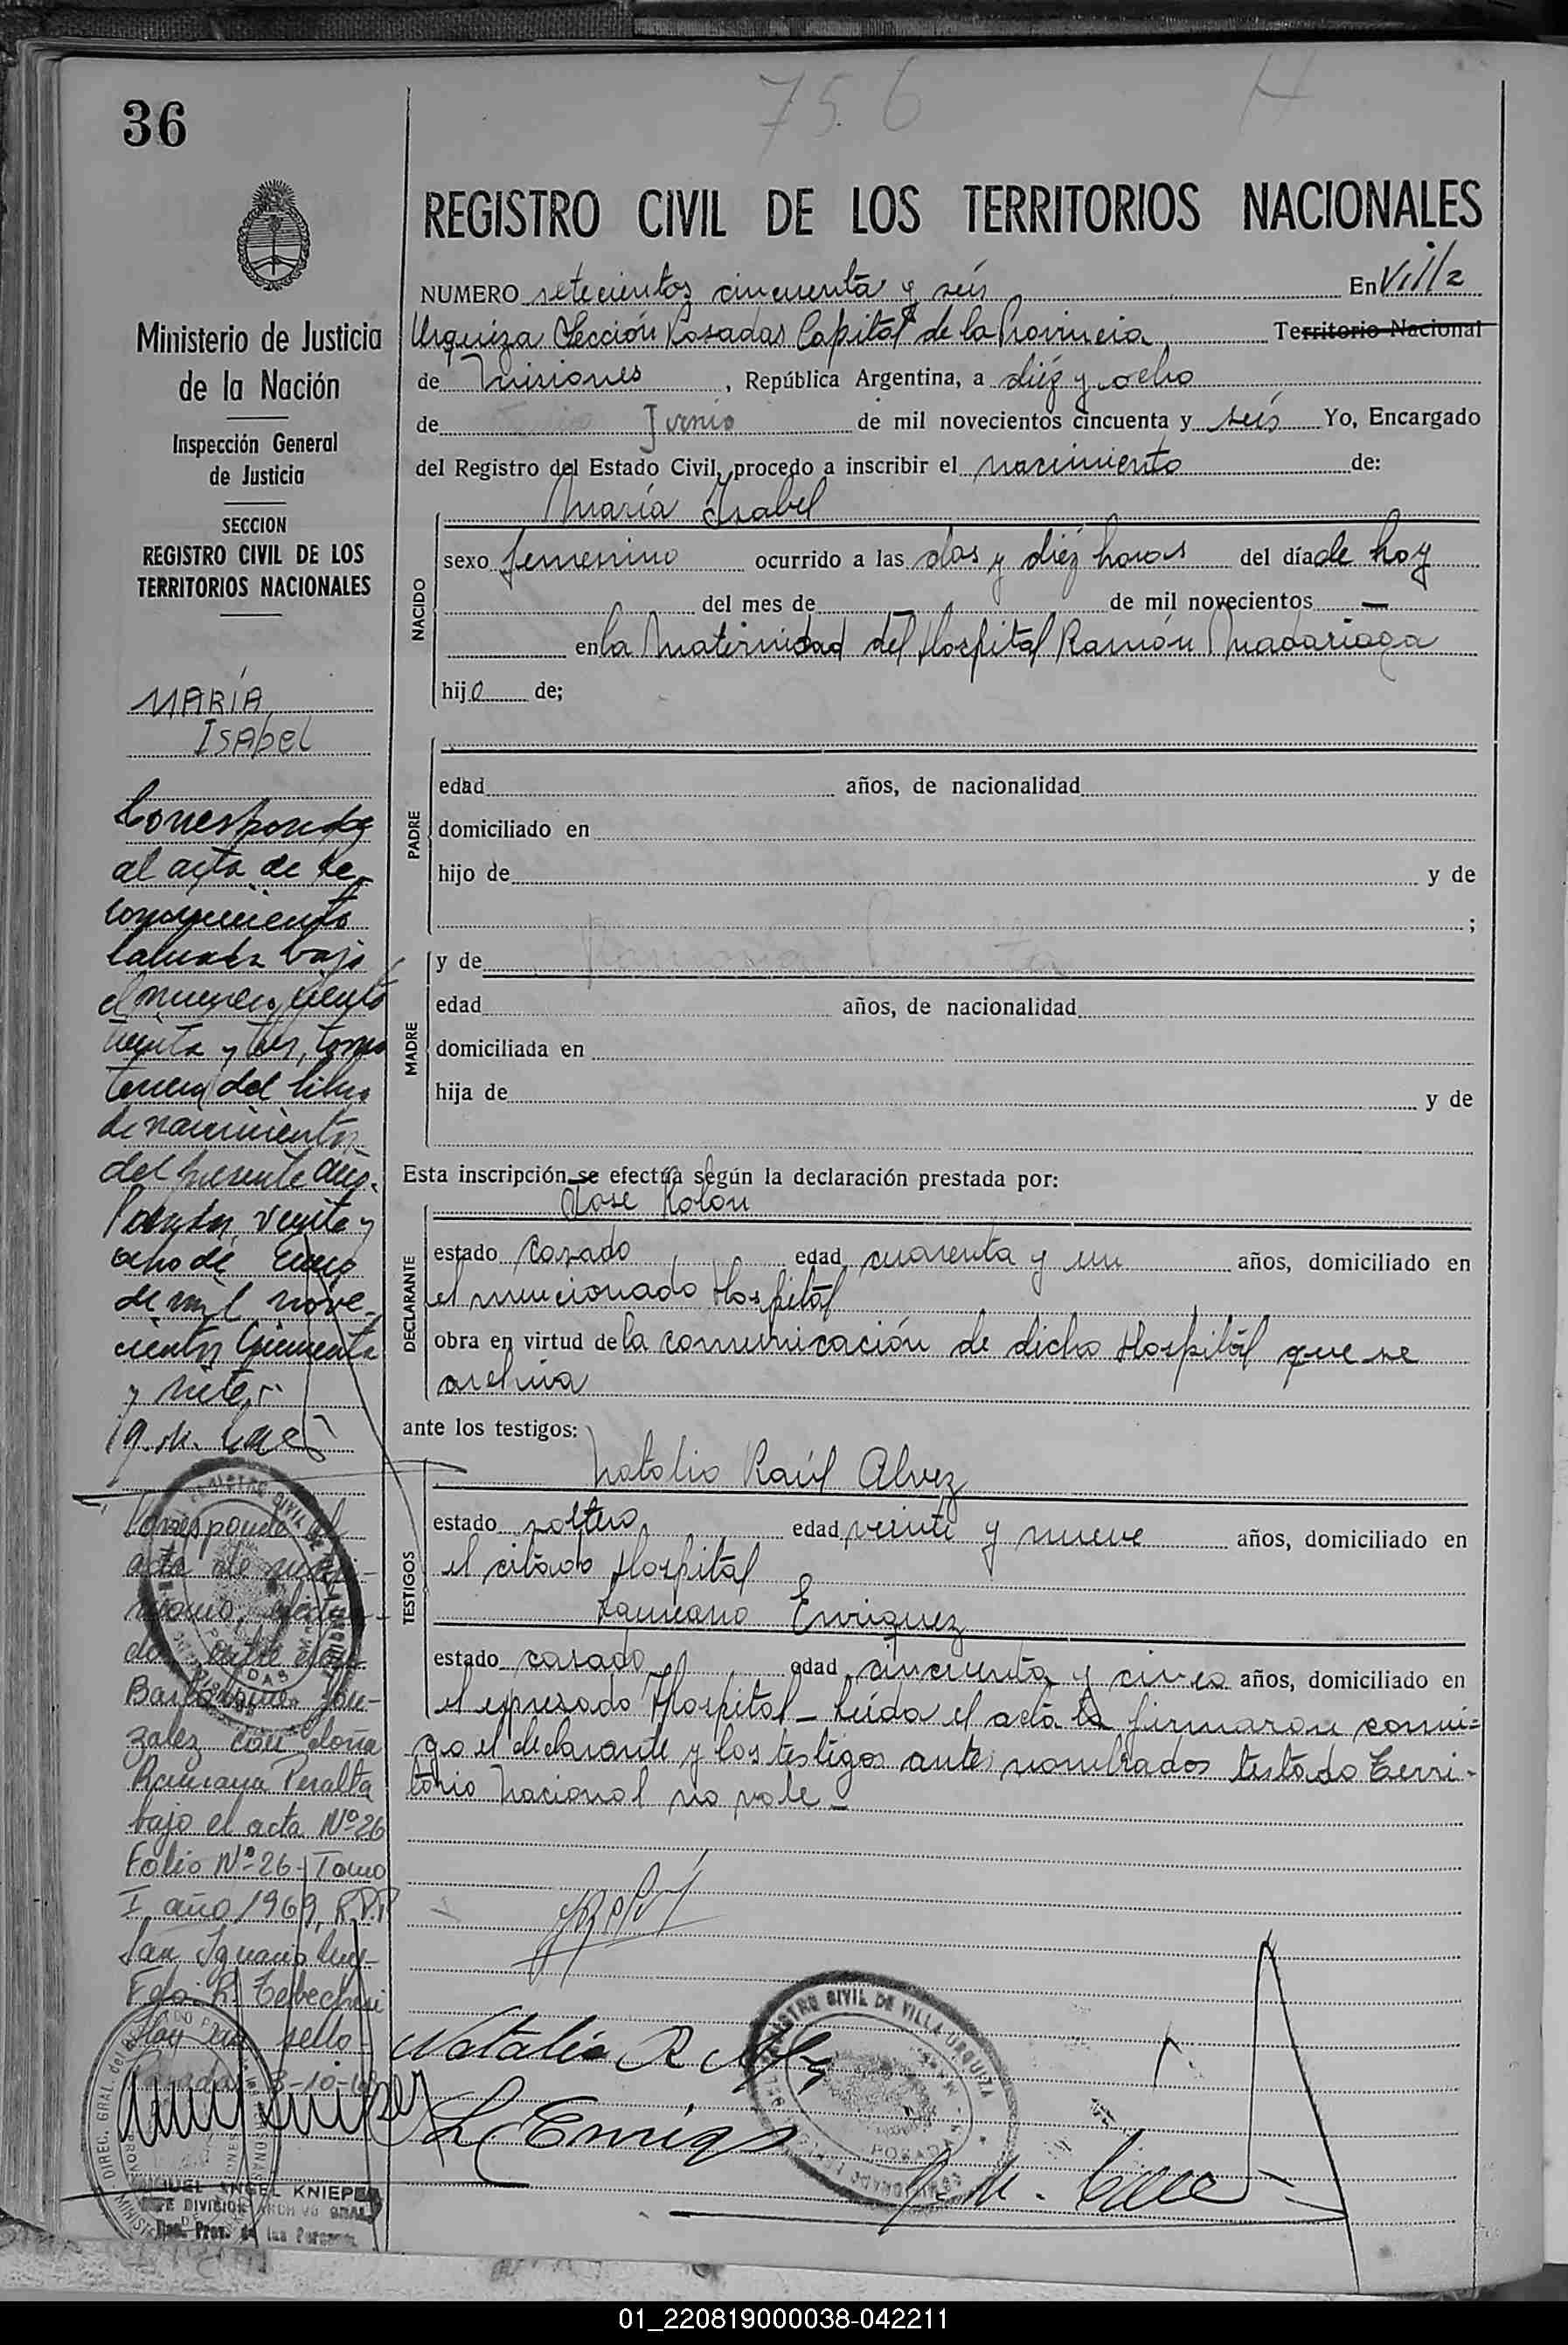 756
36
REGISTRO CIVIL DE LOS TERRITORIOS NACIONALES
NUMERO setecientos cincuenta y seis En Villa
Urquiza Sección Posadas Capital de la Provincia Territorio Nacional
de Misiones, República Argentina, a diéz y ocho
de Junio de mil novecientos cincuenta y seis Yo, Encargado
del Registro del Estado Civil, procedo a inscribir el nacimiento de:
María Isabel
NACIDO
sexo femenino ocurrido a las dos y diéz horas del día de hoy
del mes de de mil novecientos —
en la Maternidad del Hospital Ramón Madariaga
hija de;
PADRE
edad años, de nacionalidad
domiciliado en
hijo de y de
;
MADRE
y de
edad años, de nacionalidad
domiciliada en
hija de y de
Esta inscripción se efectúa según la declaración prestada por:
José Kolon
DECLARANTE
estado casado edad cuarenta y un años, domiciliado en
el mencionado Hospital
obra en virtud de la comunicación de dicho Hospital que se
archiva
ante los testigos:
Natalio Raúl Alvez
TESTIGOS
estado soltero edad veinte y nueve años, domiciliado en
el citado Hospital
Laureano Enriquez
estado casado edad cincuenta y cinco años, domiciliado en
el expresado Hospital - Leída el acta la firmaron conmi=
go el declarante y los testigos ante nombrados testado Terri-
torio Nacional no vale -
Natalio R Alvez
L Enriquez
REGISTRO CIVIL DE VILLA URQUIZA
POSADAS
Ministerio de Justicia
de la Nación
Inspección General
de Justicia
SECCION
REGISTRO CIVIL DE LOS
TERRITORIOS NACIONALES
MARÍA
ISAbEL
Corresponde
al acta de re-
conocimiento
labrada bajo
el número ciento
treinta y tres, tomo
tercero del libro
de nacimientos
del presente año.
Posadas, veinte y
ocho de Enero
de mil nove-
cientos cincuenta
y siete
Corresponde al
acta de matri-
monio,
don
González con doña
Ramona Peralta
bajo el acta Nº 26
Folio Nº 26 - Tomo
I año 1969, R.P.P
San Ignacio
Fdo. R.
Hay un sello
Posadas 3-10-
MIGUEL ANGEL KNIEPER
JEFE DIVISION ARCHIVO GRAL
Reg. Prov. de las Personas
01_220819000038-042211